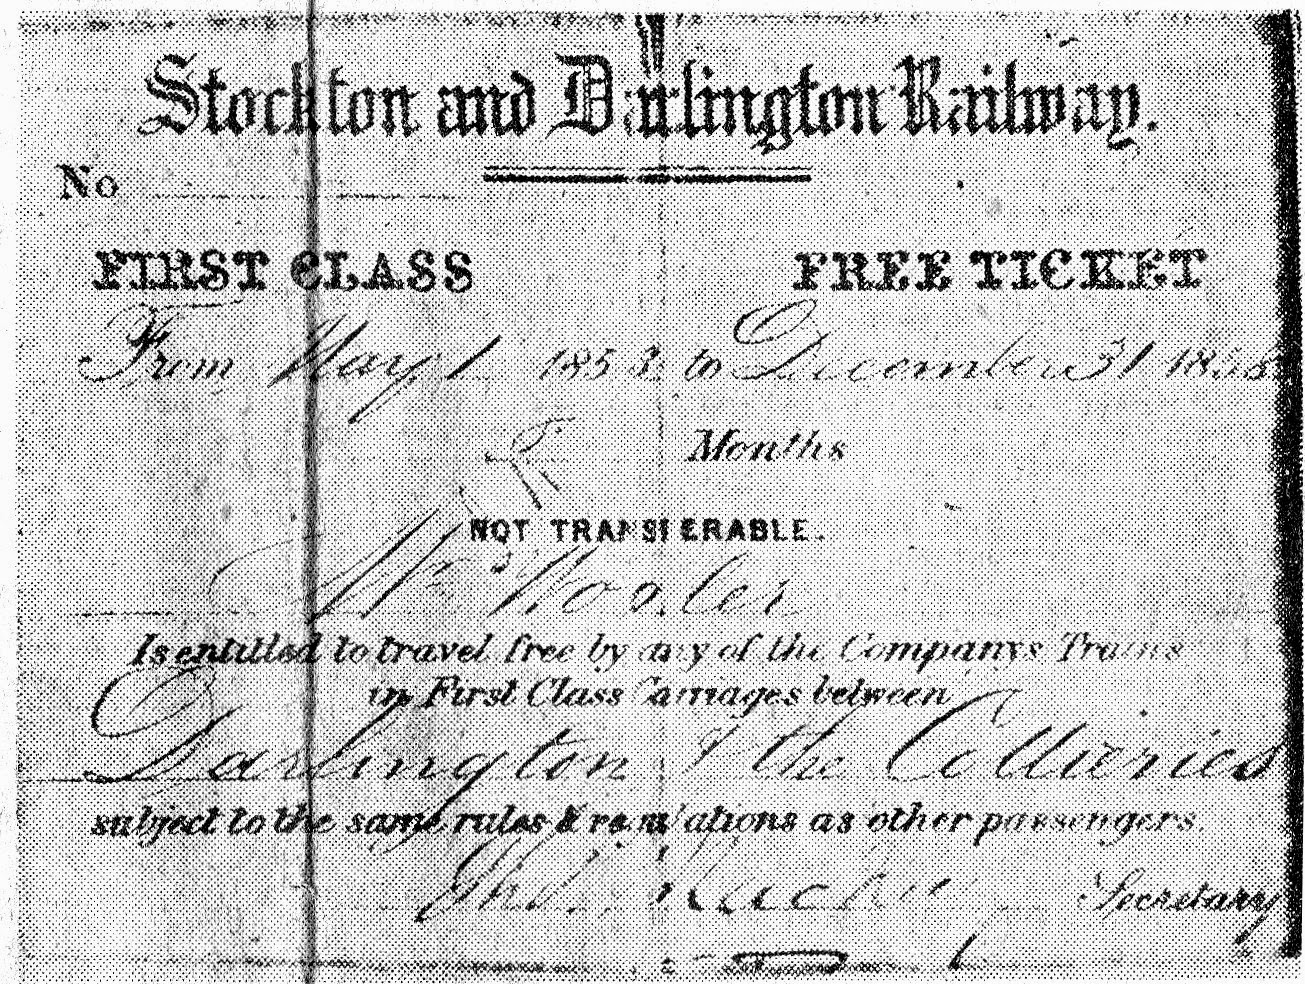 Stockton and Darlington Railway.
No
FIRST CLASS FREE TICKET
From May 1 1853 to December 31 185
Months
NOT TRANSFERABLE.
Wooler
Is entitled to travel free by any of the Companys Trains
in First Class Carriages between
Darlington & the Collieries
subject to the same rules & regulations as other passengers.
Secretary